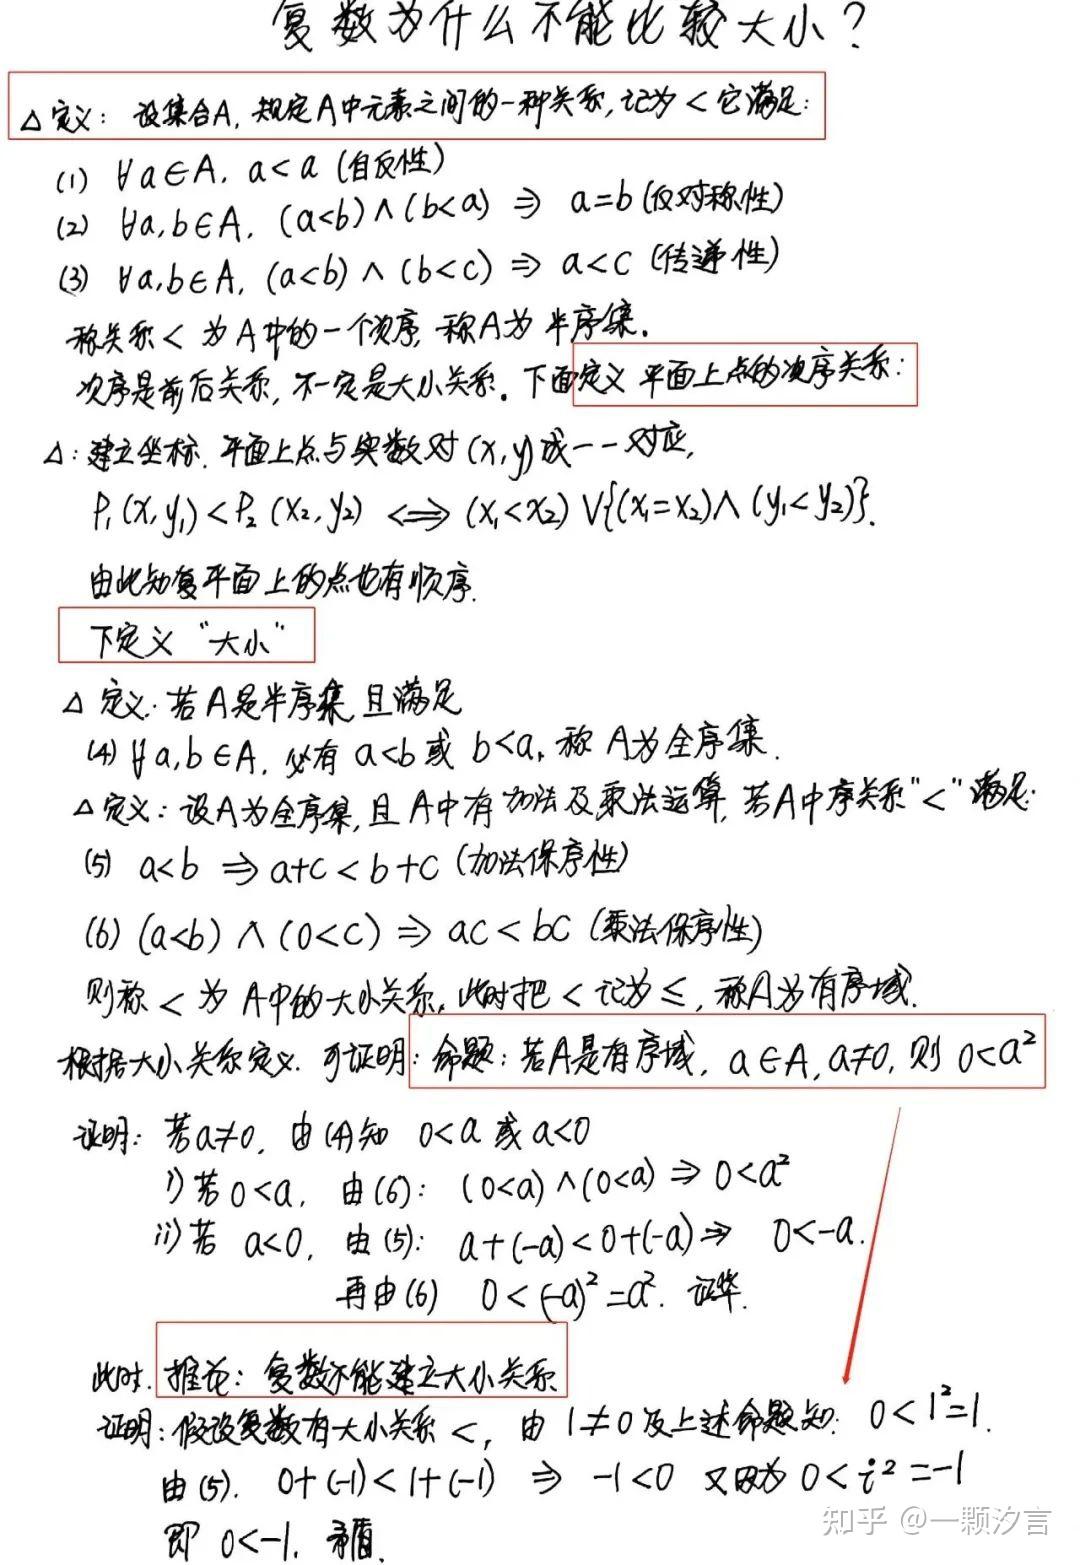 复数为什么不能比较大小？
△定义：设集合A，规定A中元素之间的一种关系，记为<它满足：
(1) ∀a∈A, a<a (自反性)
(2) ∀a,b∈A, (a<b)∧(b<a) ⇒ a=b (反对称性)
(3) ∀a,b∈A, (a<b)∧(b<c) ⇒ a<c (传递性)
称关系<为A中的一个次序，称A为半序集.
次序是前后关系，不一定是大小关系。下面定义平面上点的次序关系：
△：建立坐标，平面上点与实数对(x,y)成一一对应,
P₁(x,y₁)<P₂(x₂,y₂) ⟺ (x₁<x₂)∨{(x₁=x₂)∧(y₁<y₂)}.
由此知复平面上的点也有顺序.
下定义“大小”
△定义：若A是半序集，且满足
(4) ∀a,b∈A, 必有a<b或b<a, 称A为全序集.
△定义：设A为全序集，且A中有加法及乘法运算，若A中序关系“<”满足：
(5) a<b ⇒ a+c<b+c (加法保序性)
(6) (a<b)∧(0<c) ⇒ ac<bc (乘法保序性)
则称<为A中的大小关系，此时把<记为≤，称A为有序域.
根据大小关系定义，可证明：命题：若A是有序域，a∈A, a≠0, 则0<a²
证明：若a≠0, 由(4)知 0<a或a<0
i)若0<a, 由(6)：(0<a)∧(0<a)⇒0<a²
ii)若 a<0, 由(5)：a+(-a)<0+(-a)⇒ 0<-a.
再由(6) 0<(-a)²=a². 证毕.
此时，推论：复数不能建立大小关系
证明：假设复数有大小关系<，由1≠0及上述命题知：0<1²=1.
由(5). 0+(-1)<1+(-1) ⇒ -1<0 又因为0<i²=-1
即0<-1. 矛盾.
知乎 @一颗汐言